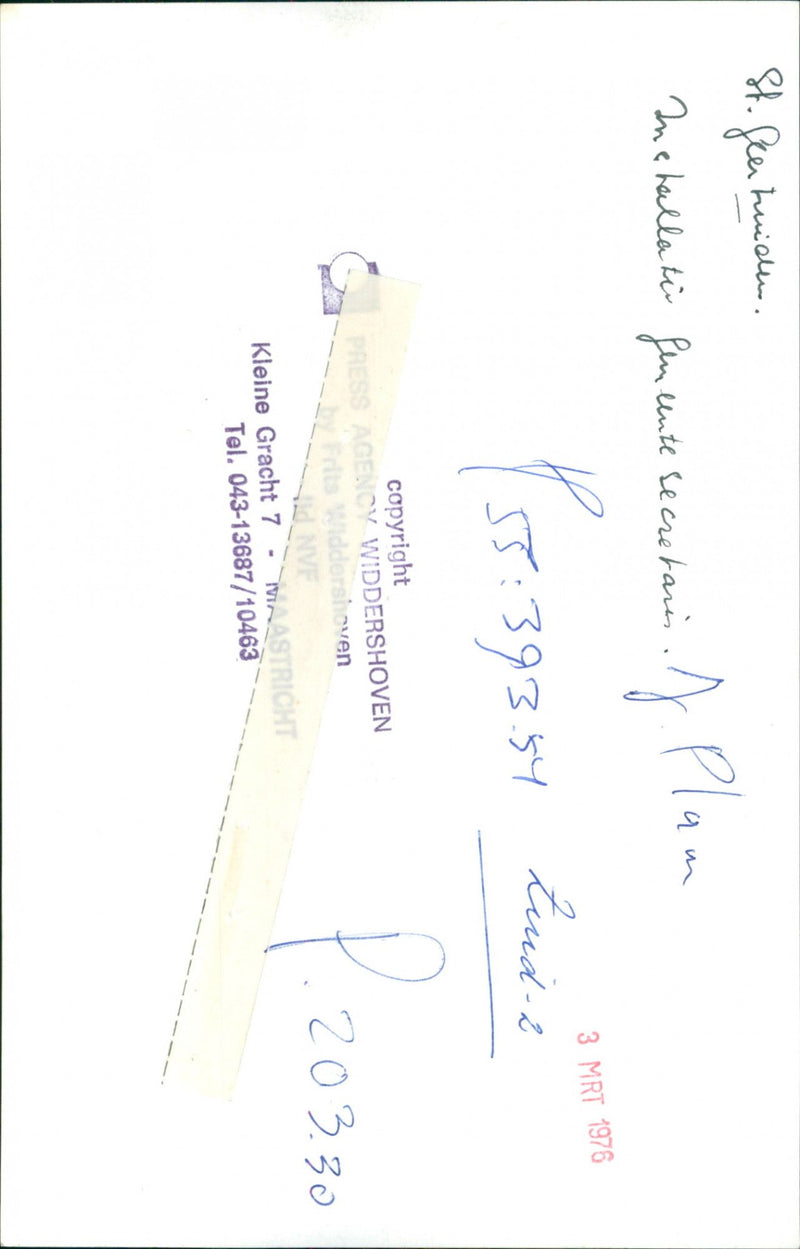 St. Geertruiden.
Installatie Gemeente secretaris. J. Plum
3 MRT 1976
P 55:393.54 Zuid-2
copyright
PRESS AGENCY WIDDERSHOVEN
by Frits Widdershoven
lid NVF
Kleine Gracht 7 - MAASTRICHT
Tel. 043-13687/10463
P. 203.30